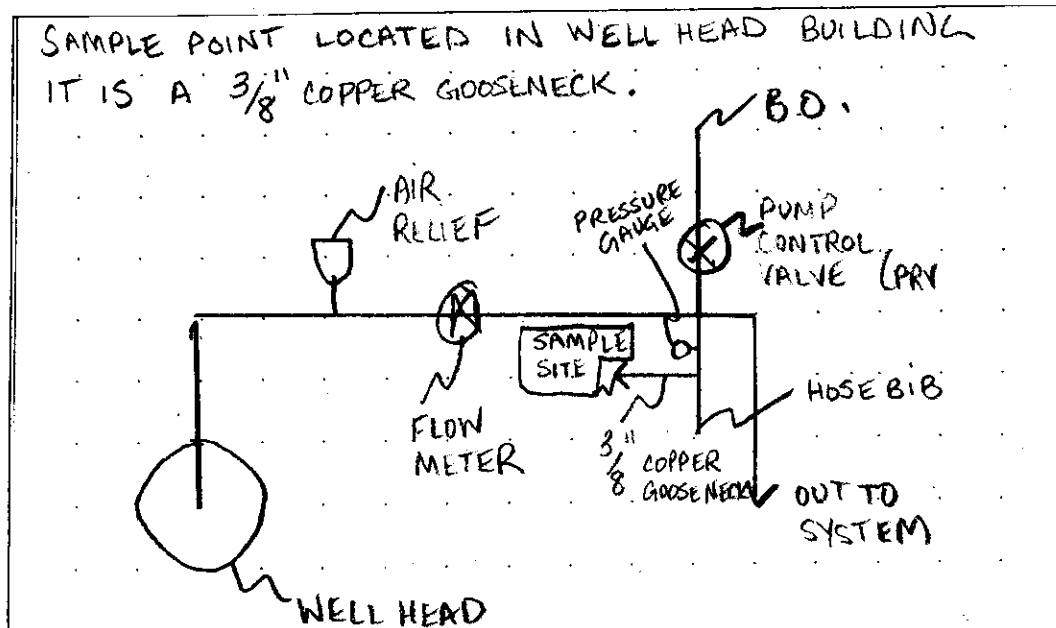 SAMPLE POINT LOCATED IN WELL HEAD BUILDING
IT IS A 3/8" COPPER GOOSENECK.
B.O.
AIR
RELIEF
PRESSURE
GAUGE
PUMP
CONTROL
VALVE (PRV
SAMPLE
SITE
HOSE BIB
FLOW
METER
3/8" COPPER
GOOSENECK
OUT TO
SYSTEM
WELL HEAD